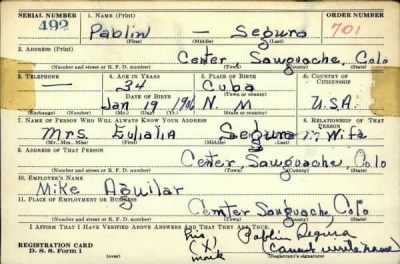 SERIAL NUMBER 1. NAME (Print) ORDER NUMBER
492 Pablin — Segura 701
(First) (Middle) (Last)
2. ADDRESS (Print)
Center, Sawguache, Colo
(Number and street or R. F. D. number) (Town) (County) (State)
3. TELEPHONE 4. AGE IN YEARS 5. PLACE OF BIRTH 6. COUNTRY OF CITIZENSHIP
— 34 Cuba
DATE OF BIRTH (Town or county)
Jan 19 1906 N. M U.S.A.
(Exchange) (Number) (Mo.) (Day) (Yr.) (State or country)
7. NAME OF PERSON WHO WILL ALWAYS KNOW YOUR ADDRESS 8. RELATIONSHIP OF THAT PERSON
Mrs. Eulalia Segura Wife
(Mr., Mrs., Miss) (First) (Middle) (Last)
9. ADDRESS OF THAT PERSON
Center, Sawguache, Colo
(Number and street or R. F. D. number) (Town) (County) (State)
10. EMPLOYER'S NAME
Mike Aguilar
11. PLACE OF EMPLOYMENT OR BUSINESS
Center Sawguache, Colo
(Number and street or R. F. D. number) (Town) (County) (State)
I AFFIRM THAT I HAVE VERIFIED ABOVE ANSWERS AND THAT THEY ARE TRUE.
his Pablin Segura
REGISTRATION CARD (X) (cannot write name)
D. S. S. Form 1 mark (Registrant's signature)